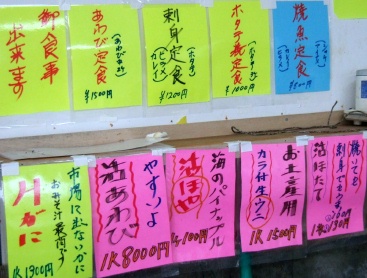 御食事
出来ます
あわび定食
(あわび 
¥1500円
刺身定食
(ホタテ
ヒラメ
カレイ)
¥1200円
ホタテ定食
¥1000円
焼魚定食
焼いても
刺身でもOK
活ほたて
お土産用
カラ付生ウニ
1K 1500円
海のパイナップル
活ほや
100円
やすいよ
活あわび
1K 8000円
市場に出ないかに
おみそ汁最高です
川がに
1K 1900円